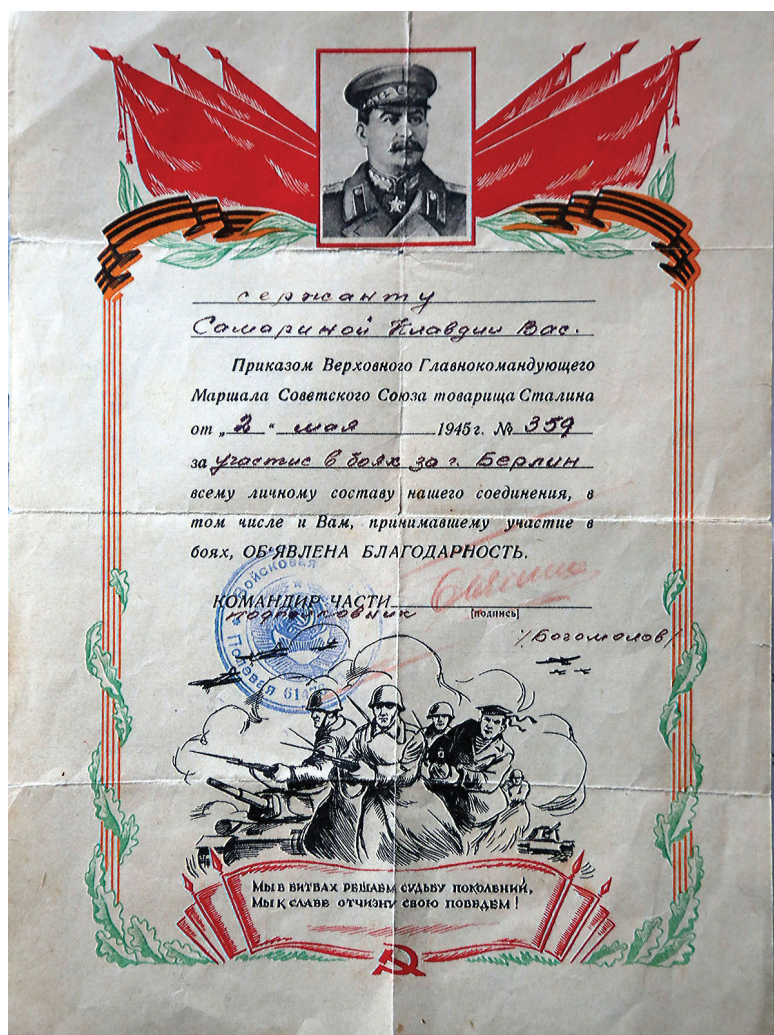 сержанту
Самариной Клавдии Вас.
Приказом Верховного Главнокомандующего
Маршала Советского Союза товарища Сталина
от „2“ мая 1945 г. № 359
за участие в боях за г. Берлин
всему личному составу нашего соединения, в
том числе и Вам, принимавшему участие в
боях, ОБ'ЯВЛЕНА БЛАГОДАРНОСТЬ.
КОМАНДИР ЧАСТИ
подполковник [подпись]
/Богомолов/
Войсковая
Полевая
МЫ В БИТВАХ РЕШАЕМ СУДЬБУ ПОКОЛЕНИЙ,
МЫ К СЛАВЕ ОТЧИЗНУ СВОЮ ПОВЕДЕМ!